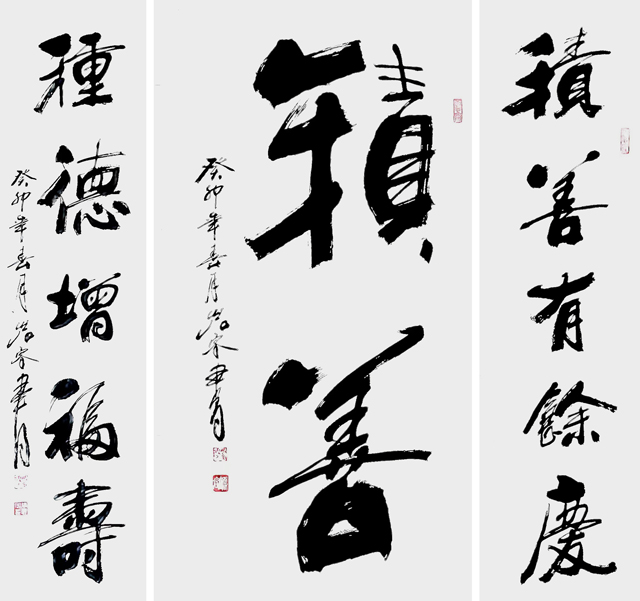 積善有餘慶
積善
癸卯年春月
種德增福壽
癸卯年春月